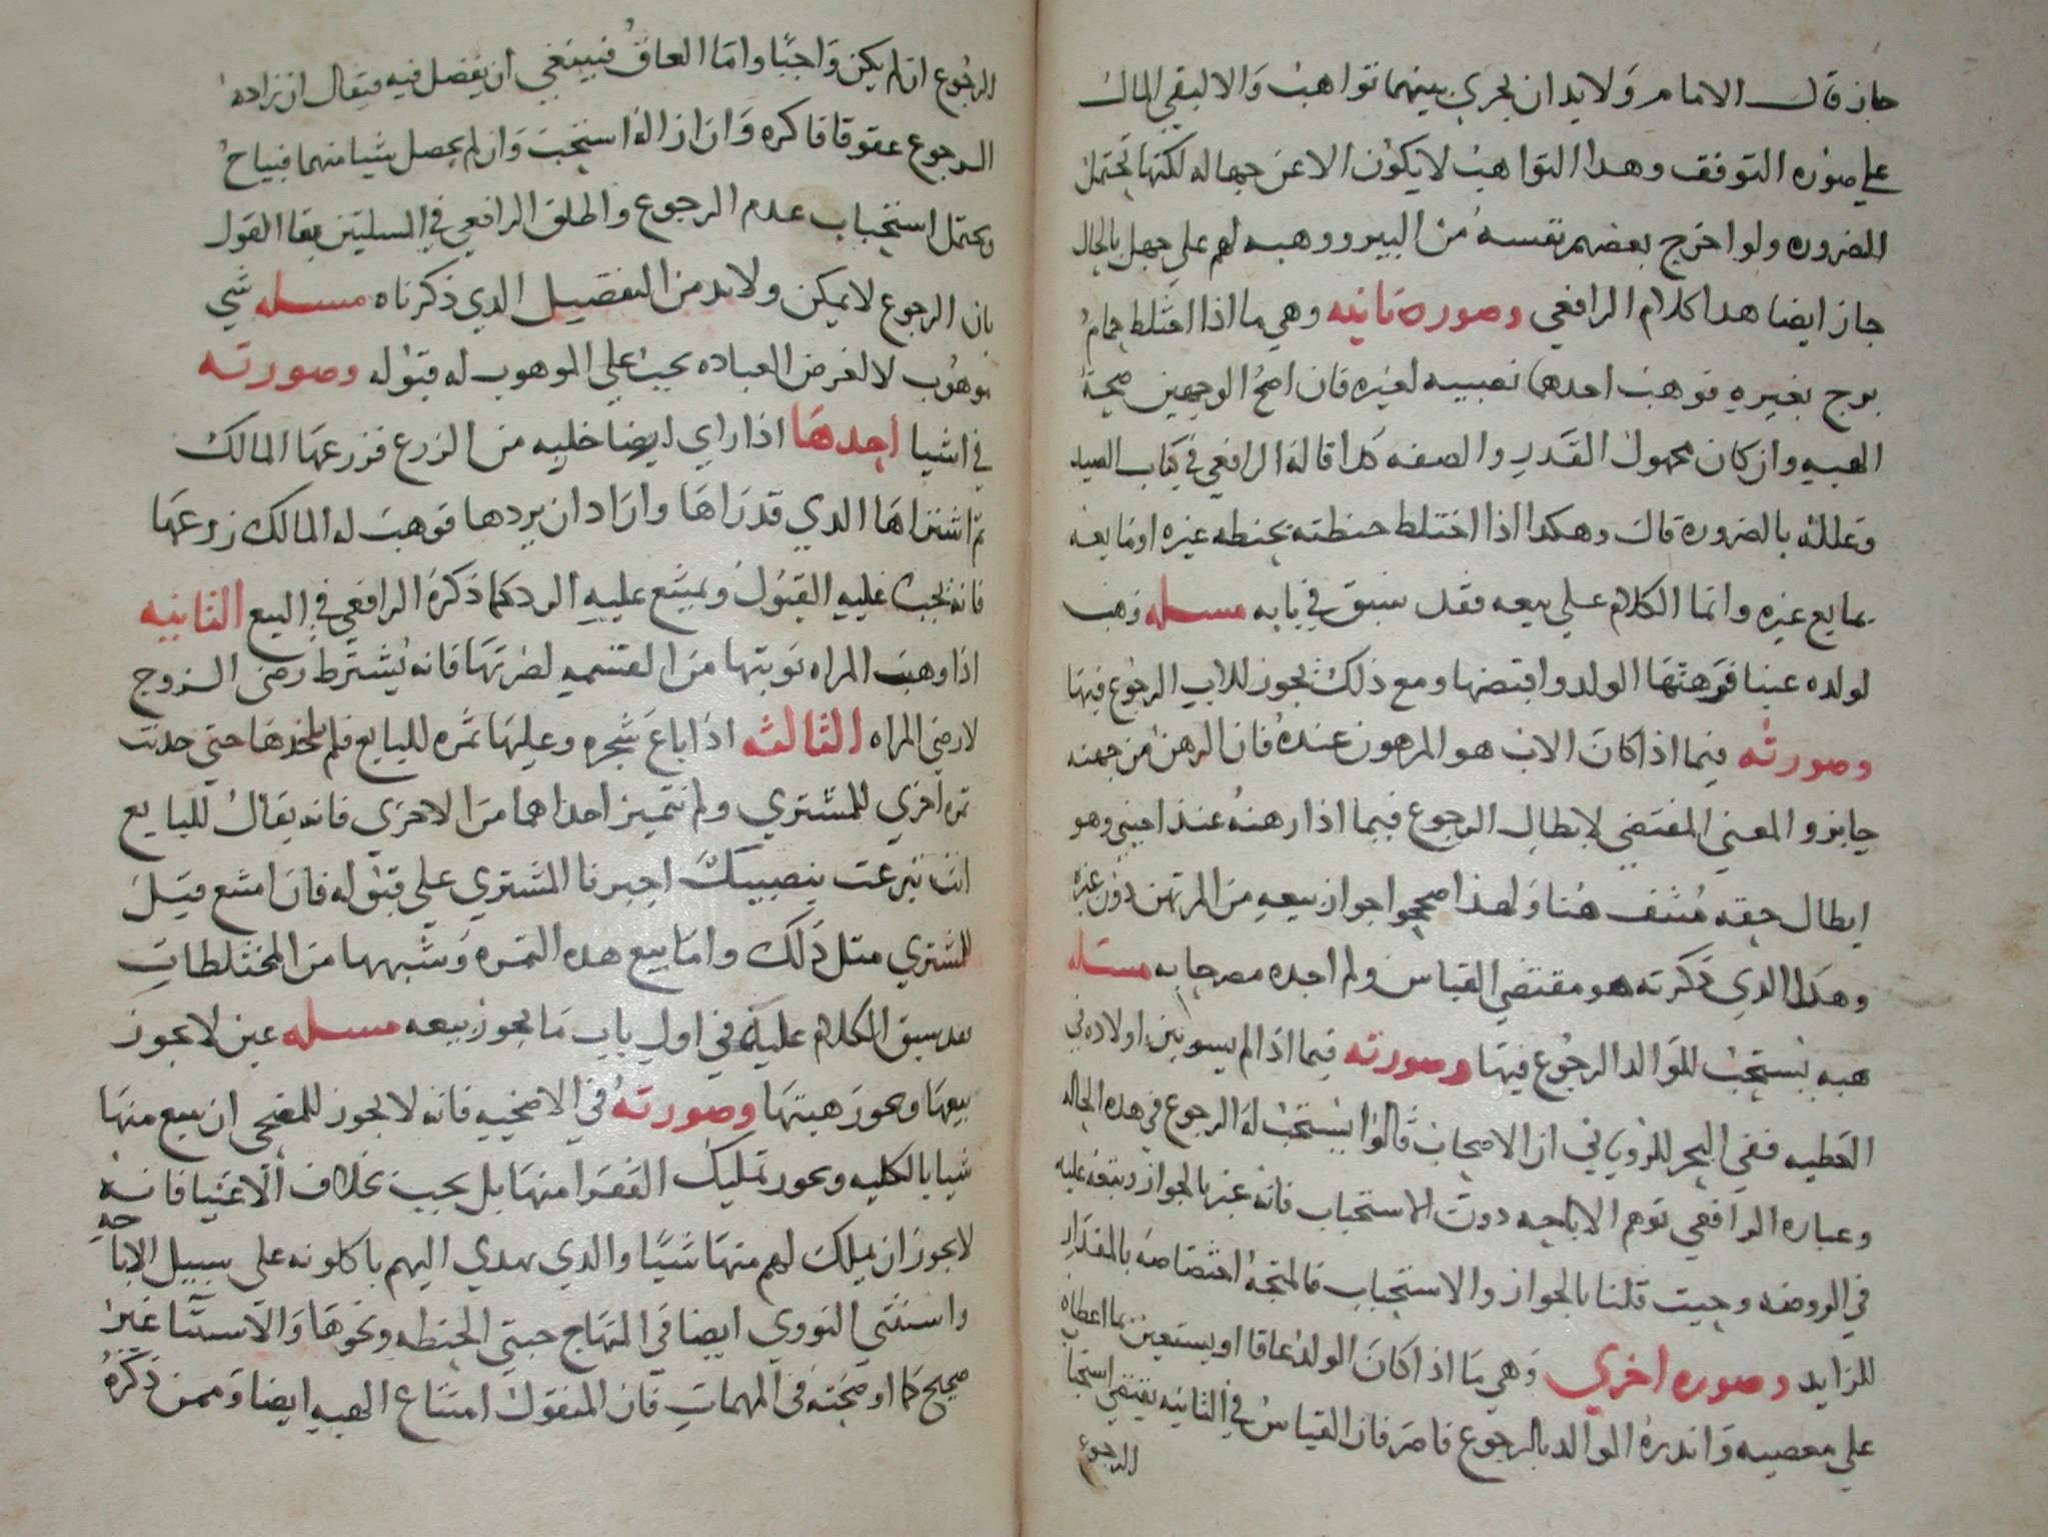 جاز قال الامام ولا بد ان يجري بينهما تواهب والا لبقي المال
علي صوره التوقف وهذا التواهب لا يكون الا عن جهاله لكنها تحتمل
للضروره ولو اخرج بعضهم نفسه من البين ووهبه لهم علي جهل بالحال
جاز ايضا هدا كلام الرافعي وصورة ثانيه وهي ما اذا اختلط حمام
برج بغيره فوهب احدهما نصيبه لغيره فان اصح الوجهين صحة
الهبه وان كان مجهول القدر والصفه كدا قاله الرافعي في كتاب الصيد
وعلله بالضرورة قال وهكدا اذا اختلط حنطته بحنطه غيره او مايعه
بمايع غيره وانما الكلام علي بيعه فقد سبق في بابه مسله وهب
لولده عينا فرهنها الولد واقبضها ومع ذلك يجوز للاب الرجوع فيها
وصورته فيما اذا كان الاب هو المرهون عنده فان الرهن من جهته
جايز والمعني المقتضي لابطال الرجوع فيما اذا رهنه عند اجنبي وهو
ابطال حقه منتف هنا ولهذا صححوا جواز بيعه من المرتهن دون غيره
وهدا الدي ذكرته هو مقتضي القياس ولم اجده مصرحا به مسله
هبه يستحب للوالد الرجوع فيها وصورته فيما اذا لم يسو بين اولاده في
العطيه ففي البحر للروياني ان الاصحاب قالوا يستحب له الرجوع في هده الحاله
وعباره الرافعي توهم الاباحه دون الاستحباب فانه عبر بالجواز وتبعه عليه
في الروضه وحيث قلنا بالجواز والاستحباب فالمتجه اختصاصه بالمقدار
الزايد وصوره اخري وهي ما اذا كان الولد عاقا او يستعين بما اعطاه
علي معصيه وانذره الوالد بالرجوع فاصر فان القياس في الثانيه يقتضي استحبا
الرجوع
الرجوع ان لم يكن واجبا واما العاق فينبغي ان يفصل فيه فيقال ان زاده
الرجوع عقوقا فاكره وان ازاله استحب وان لم يحصل شيا منهما فيباح
ويحتمل استحباب عدم الرجوع واطلق الرافعي في المسلتين بقا القول
بان الرجوع لا يمكن ولا بد من التفصيل الدي ذكرناه مسله شي
موهوب لا لغرض العباده يجب علي الموهوب له قبوله وصورته
في اشيا احدها اذا راي ارضا خليه من الزرع فزرعها المالك
ثم اشتراها الدي قد راها واراد ان يردها فوهب له المالك زرعها
فانه يجب عليه القبول ويمتنع عليه الرد كما ذكره الرافعي في البيع الثانيه
اذا وهبت المراه نوبتها من القسمه لضرتها فانه يشترط رضي الزوج
لا رضي المراه الثالثه اذا باع شجره وعليها ثمره للبايع فلم ياخذها حتي حدثت
ثمره اخري للمشتري ولم تتميز احداهما من الاخري فانه يقال للبايع
ان تبرعت بنصيبك اجبرنا المشتري علي قبوله فان امتنع قيل
للمشتري مثل ذلك واما بيع هده الثمره وشبهها من المختلطات
فقد سبق الكلام عليه في اول باب ما يجوز بيعه مسله عين لا يجوز
بيعها ويجوز هبتها وصورته في الاضحيه فانه لا يجوز للمضحي ان يبيع منها
شيا بالكليه ويجوز تمليك الفقرا منها بل يجب بخلاف الاغنيا فانه
لا يجوز ان يملك لهم منها شيا والدي يهدي اليهم ياكلونه علي سبيل الاباحه
واستثني النووي ايضا في المنهاج حبتي الحنطه ونحوها والاستثنا غير
صحيح كما اوضحته في المهمات فان المنقول امتناع الهبه ايضا وممن ذكره